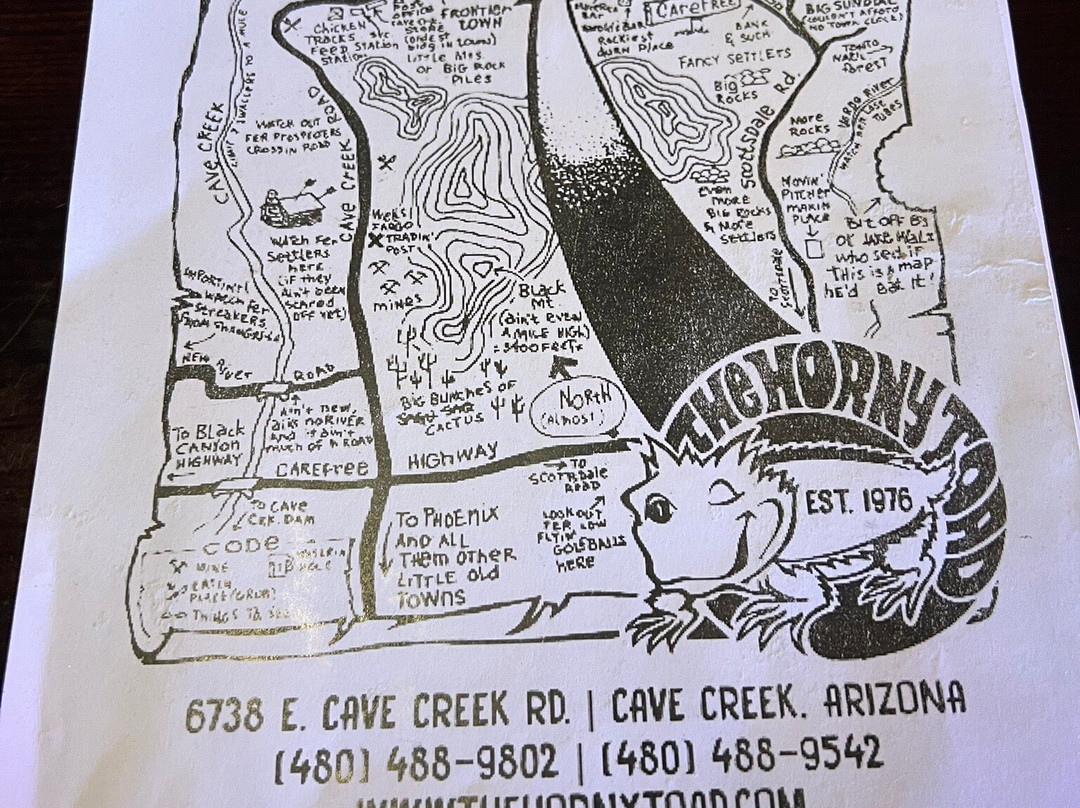 POST
OFFICE
FRONTIER
TOWN
CHICKEN
TRACKS
FEED STATION
STORE
(OLDEST
BLDG IN TOWN)
LITTLE
OR BIG ROCK
PILES
CAREFREE
BAR
ROCKIEST
PLACE
BANK
& SUCH
FANCY SETTLERS
Big
ROCKS
BIG SUNDIAL
(COULDN'T AFFORD
NO TOWN CLOCK)
TONTO
NAT'L
forest
VERDE RIVER
TUBES
CAVE CREEK
WATCH OUT
FER PROSPECTERS
CROSSIN ROAD
CAVE CREEK ROAD
SCOTTSDALE Rd.
MORE
ROCKS
even
more
Big Rocks
& More
Settlers
MOVIN'
PITCHER
MAKIN
PLACE
BIT OFF BY
who sed if
This is a map
he'd eat it!
WELLS
FARGO
TRADIN'
POST
mines
WATCH Fer
Settlers
here
(if they
Ain't been
scared
OFF YET)
IMPORTINT
WATCH Fer
Streakers
FROM
BLACK
Mt.
(ain't even
A MILE HIGH)
=3400 FEET
TO
SCOTTSDALE
NEW River ROAD
BIG BUNCHES OF
CACTUS
NORTH
(ALMOST)
Ain't new,
ain't no RIVER
and it ain't
much of A ROAD
To Black
CANYON
HIGHWAY
CAREFREE HIGHWAY
TO
SCOTTSDALE
ROAD
TO CAVE
CRK. DAM
TO PHOENIX
AND ALL
THEM OTHER
LITTLE OLD
TOWNS
LOOKOUT
FER LOW
FLYIN'
GOLFBALLS
HERE
CODE
MINE
THINGS TO SEE
THE HORNY TOAD
EST. 1976
6738 E. CAVE CREEK RD. | CAVE CREEK, ARIZONA
(480) 488-9802 | (480) 488-9542
WWW.THEHORNYTOAD.COM